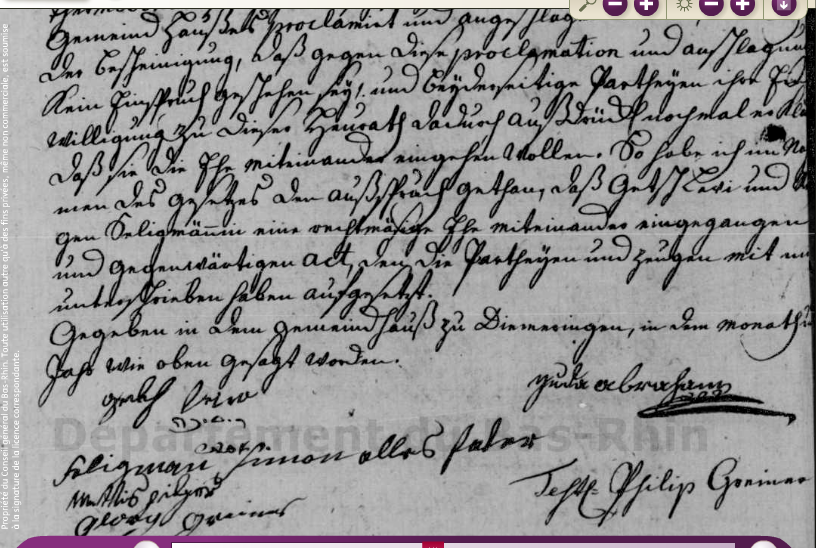 Gemeind Haußes proclamirt und angeschlag
der bescheinigung, daß gegen diese proclamation und anschlagung
Kein Einspruch geschehen sey, und beyderseitige Partheyen ihre Ein
willigung zu dieser Heurath dadurch ausdrücklich nochmal erklä
daß sie die Ehe miteinander eingehen wollen. So habe ich im Na
men des Gesetzes den außspruch gethan, daß Getsch Levi und
gen Seligmännin eine rechtmäsige Ehe miteinander eingegangen
und gegenwärtigen act, den die Partheyen und zeugen mit mir
unterschrieben haben aufgesetzt.
Gegeben in dem gemeindhauß zu Diemeringen, in dem monath u
Jahr wie oben gesagt worden.
abraham
Seligman Simon alles fater
Philip Greiner
Greiner
Département du Bas-Rhin
Propriété du Conseil général du Bas-Rhin. Toute utilisation autre qu'à des fins privées, même non commerciale, est soumise
à la signature de la licence correspondante.